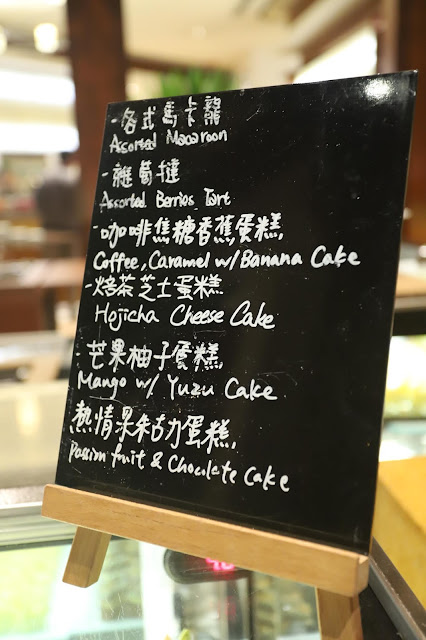 - 各式馬卡龍
Assorted Macaroon
- 雜莓撻
Assorted Berries Tart
- 咖啡焦糖香蕉蛋糕
Coffee, Caramel w/ Banana Cake
- 焙茶芝士蛋糕
Hojicha Cheese Cake
- 芒果柚子蛋糕
Mango w/ Yuzu Cake
熱情果朱古力蛋糕
Passion fruit & Chocolate Cake